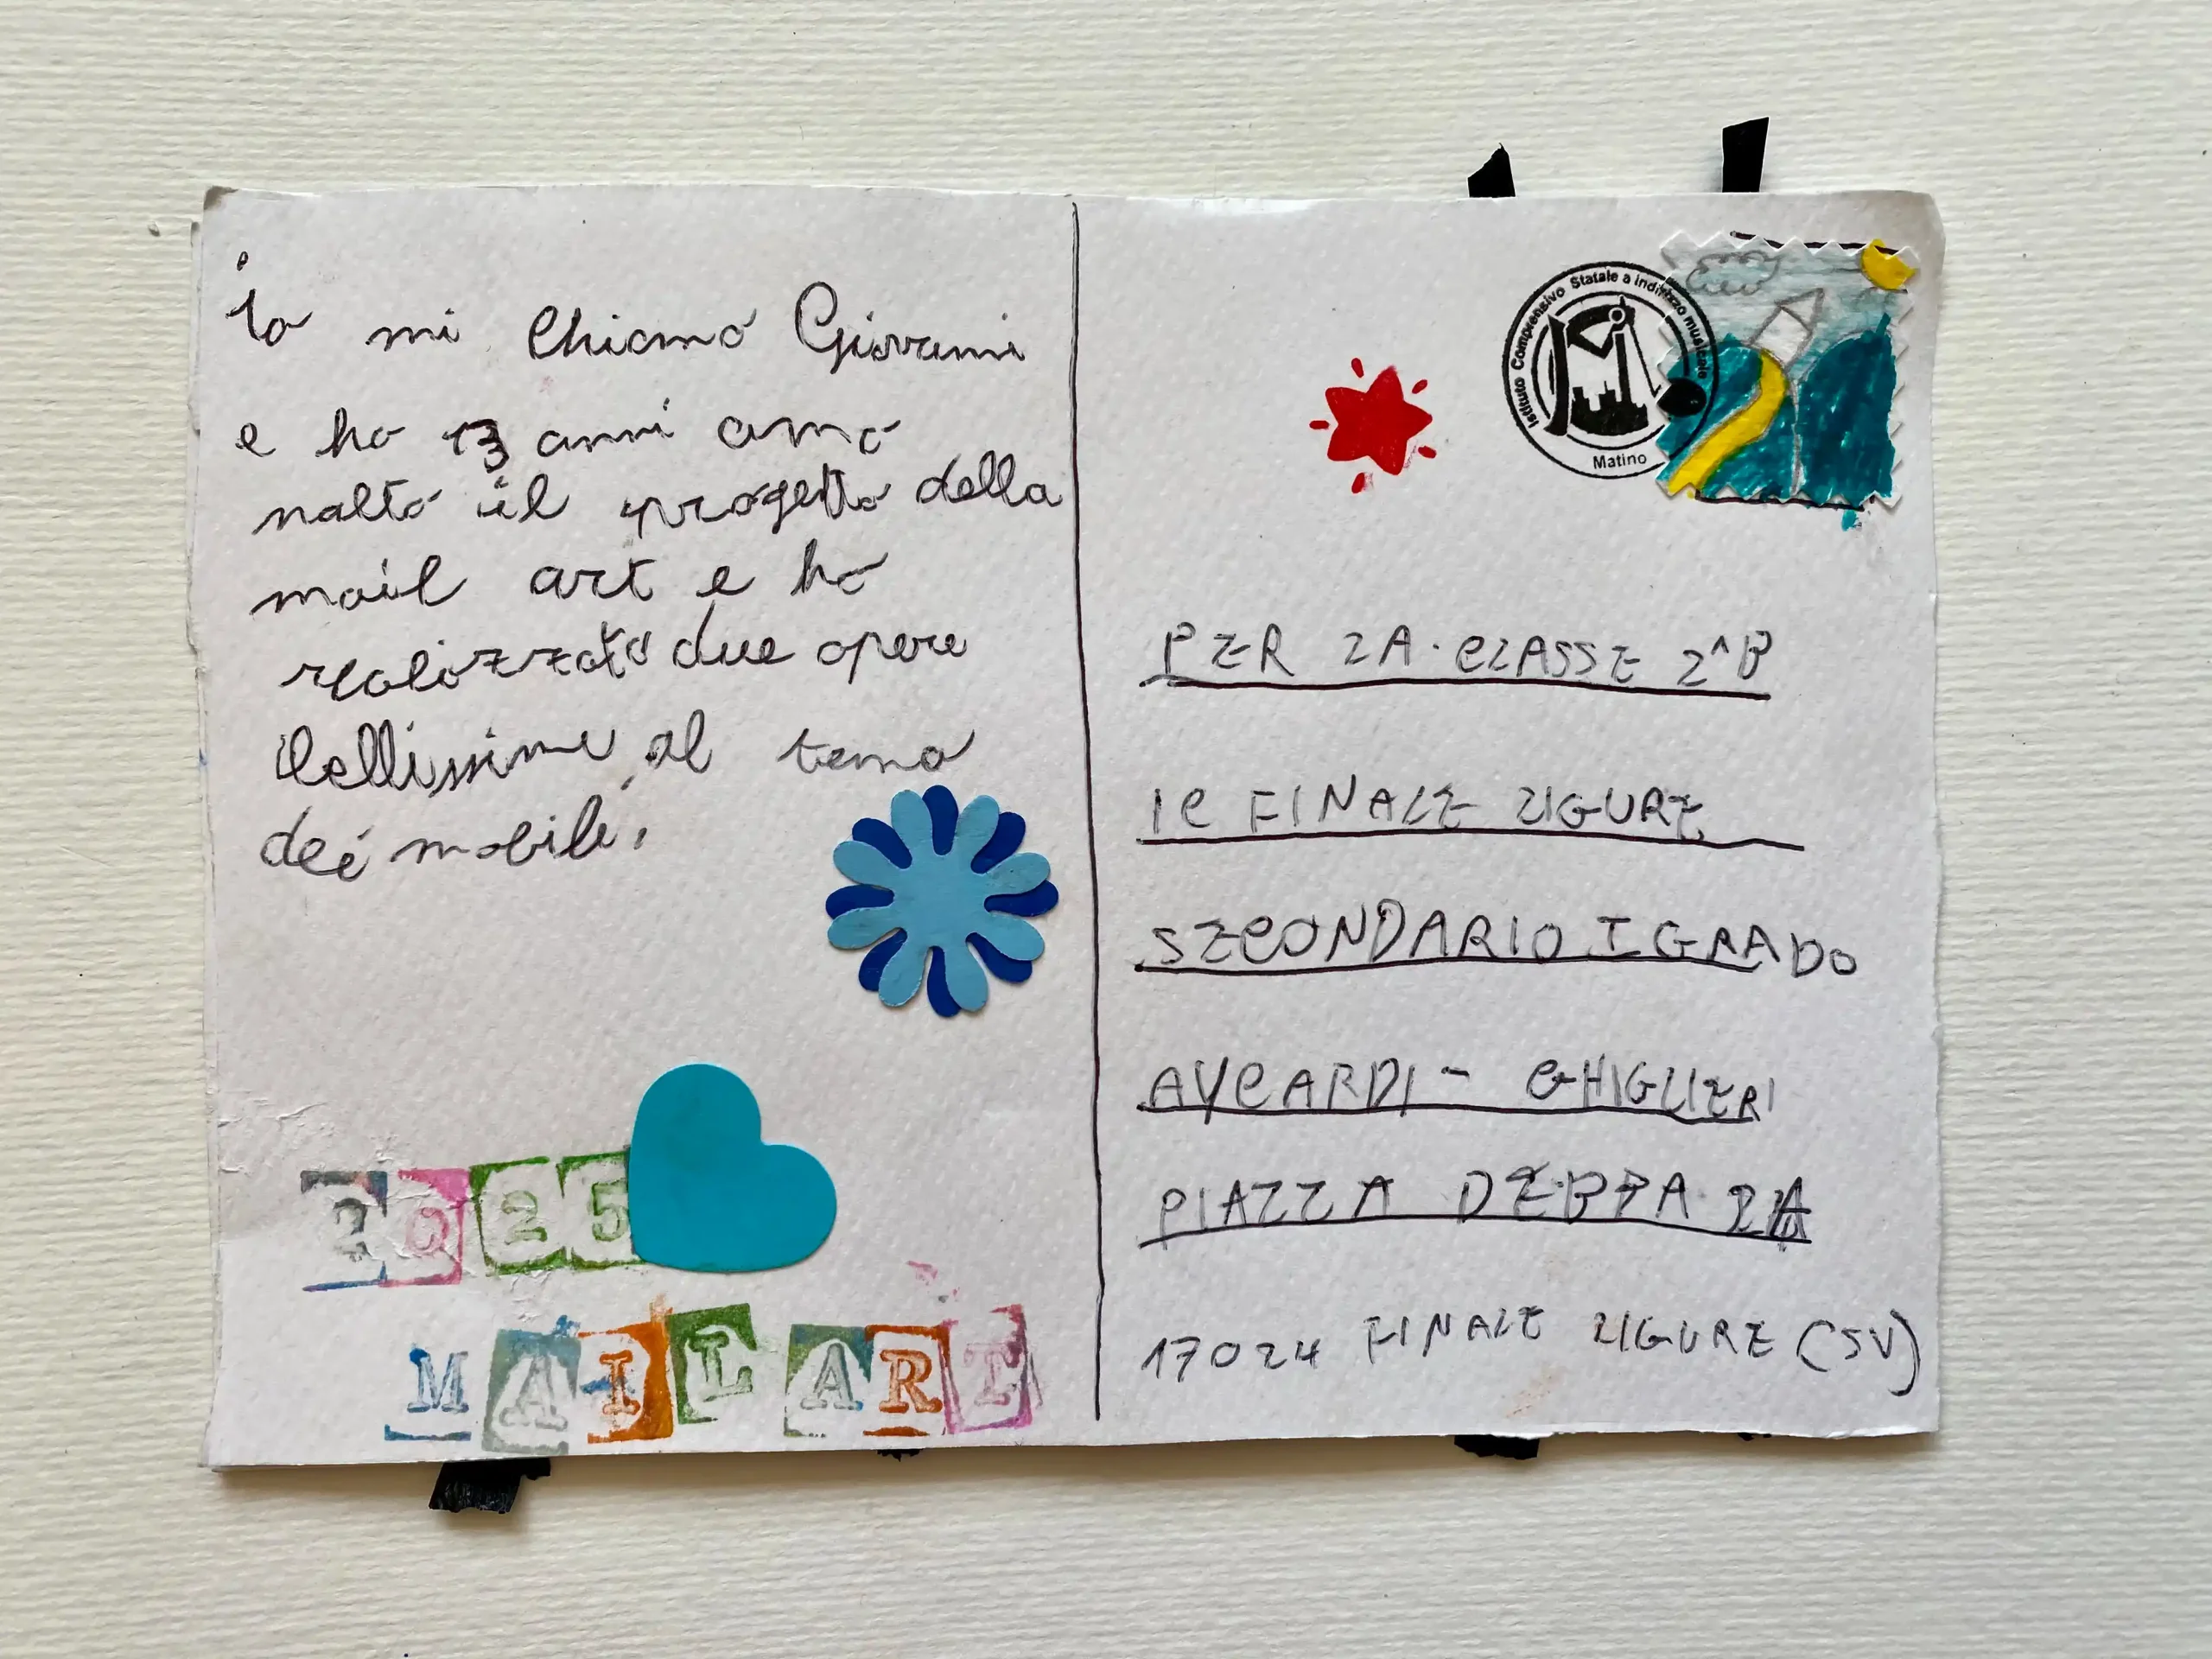 io mi chiamo Giovanni
e ho 13 anni amo
molto il progetto della
mail art e ho
realizzato due opere
bellissime al tema
dei mobili.
2025
MAIL ART
Istituto Comprensivo Statale a indirizzo musicale
Matino
PER LA CLASSE 2^B
IC FINALE LIGURE
SECONDARIO I GRADO
AYCARDI - GHIGLIERI
PIAZZA
17024 FINALE LIGURE (SV)